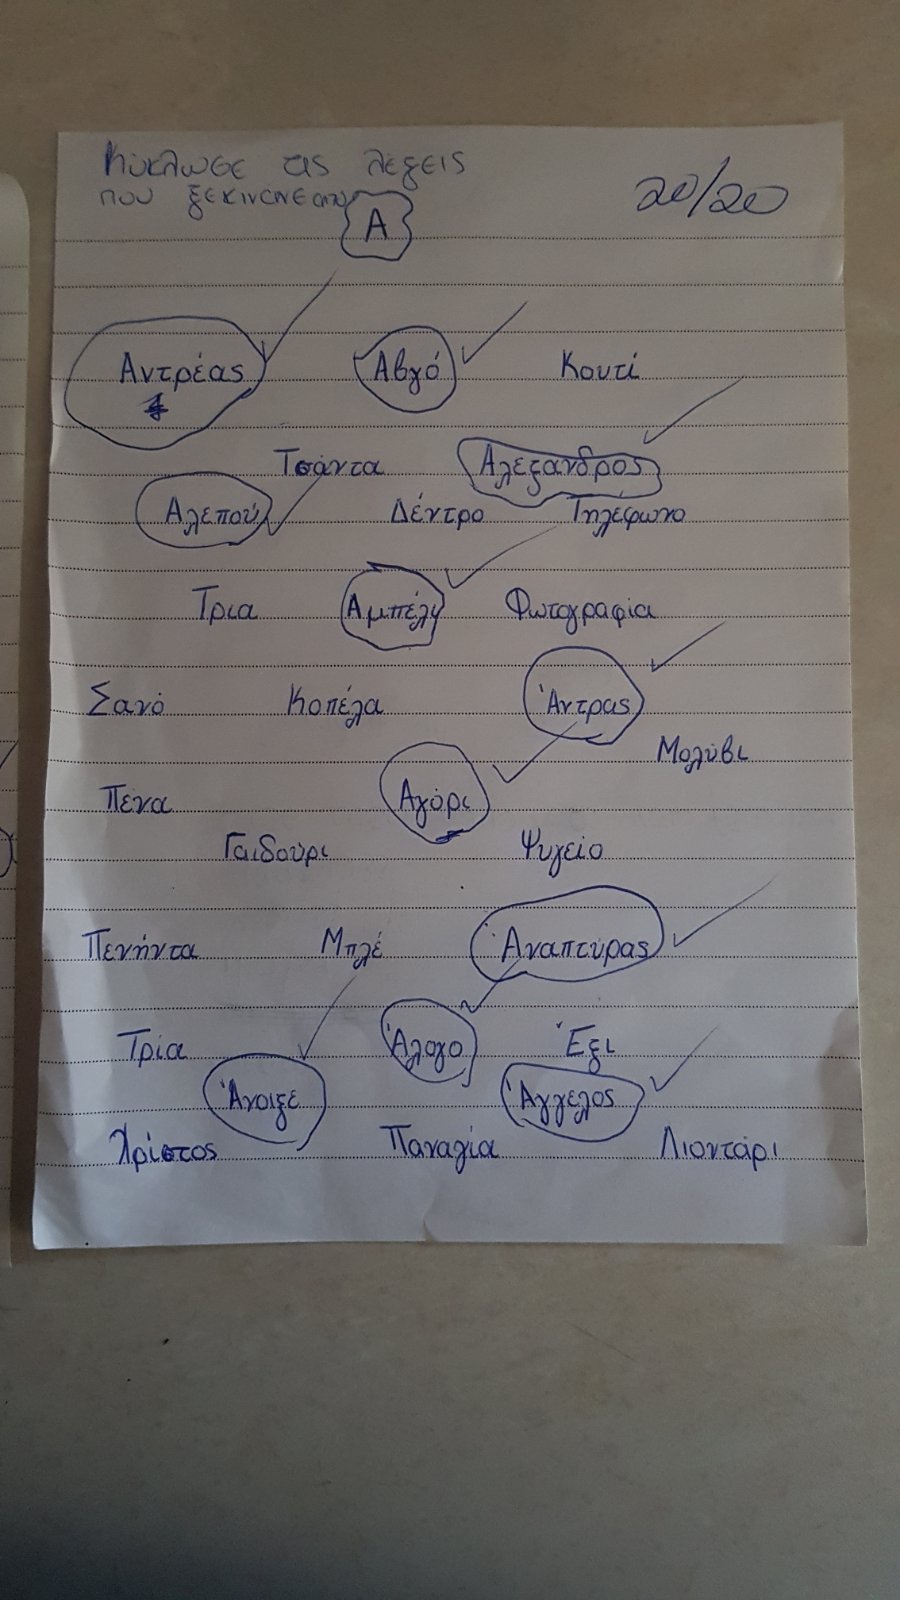 Κύκλωσε τις λέξεις
που ξεκινάνε από
20/20
Α
Αντρέας Αβγό Κουτί
Τσάντα Αλεξανδρος
Αλεπού Δέντρο Τηλέφωνο
Τρια Αμπέλι Φωτογραφία
Σανό Κοπέλα Άντρας
Μολύβι
Πένα Αγόρι
Γαιδούρι Ψυγείο
Πενήντα Μπλέ Άναπτύρας
Τρία Άλογο Έξι
Άνοιξε Άγγελος
Χρίστος Παναγία Λιοντάρι